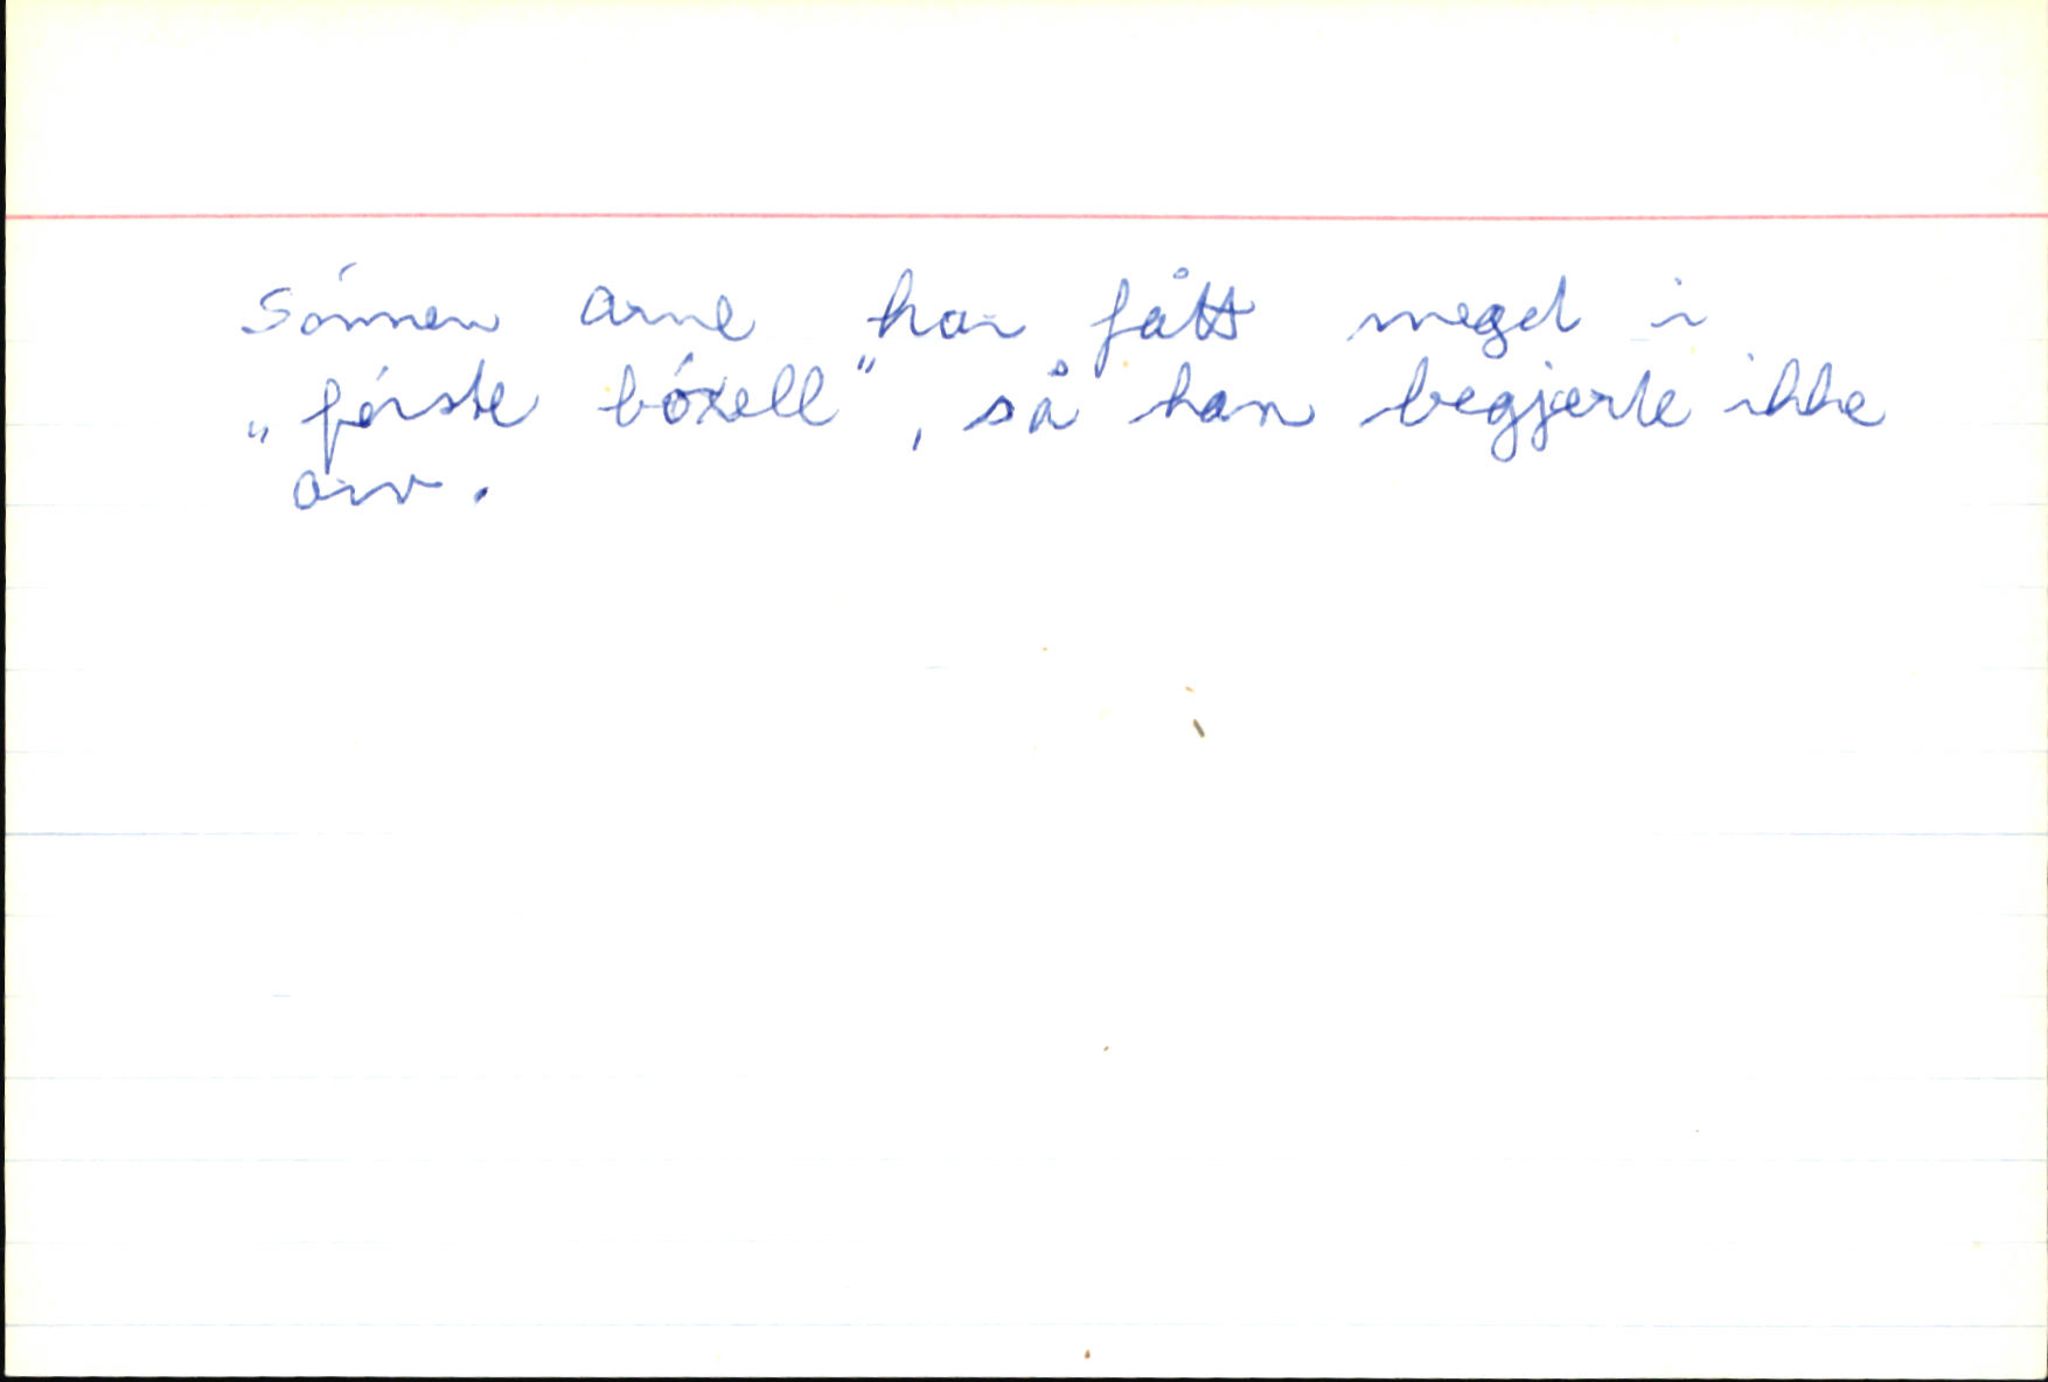 Sónnen Arne har fått meget i
„fórste bóxell", så han begjerte ikke
arv.